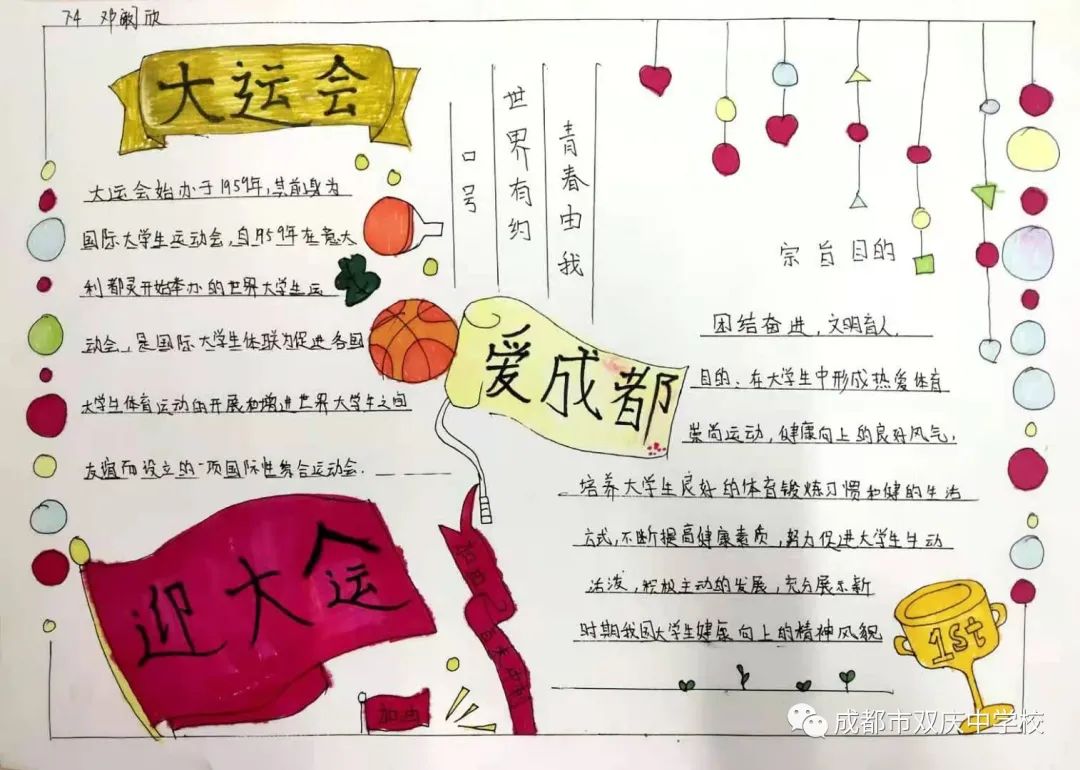 7.4 邓阚欣
大运会
大运会始办于1959年,其前身为
国际大学生运动会,自959年在意大
利都灵开始举办的世界大学生运
动会,是国际大学生体联为促进各国
大学生体育运动的开展和增进世界大学生之间
友谊而设立的一项国际性综合运动会.
口号
世界有约
青春由我
爱成都
宗旨目的
团结奋进,文明育人,
目的:在大学生中形成热爱体育
崇尚运动,健康向上的良好风气,
培养大学生良好的体育锻炼习惯和健的生活
方式,不断提高健康素质,努力促进大学生生动
活泼,积极主动的发展,充分展示新
时期我国大学生健康向上的精神风貌
迎大运
加油
1st
成都市双庆中学校